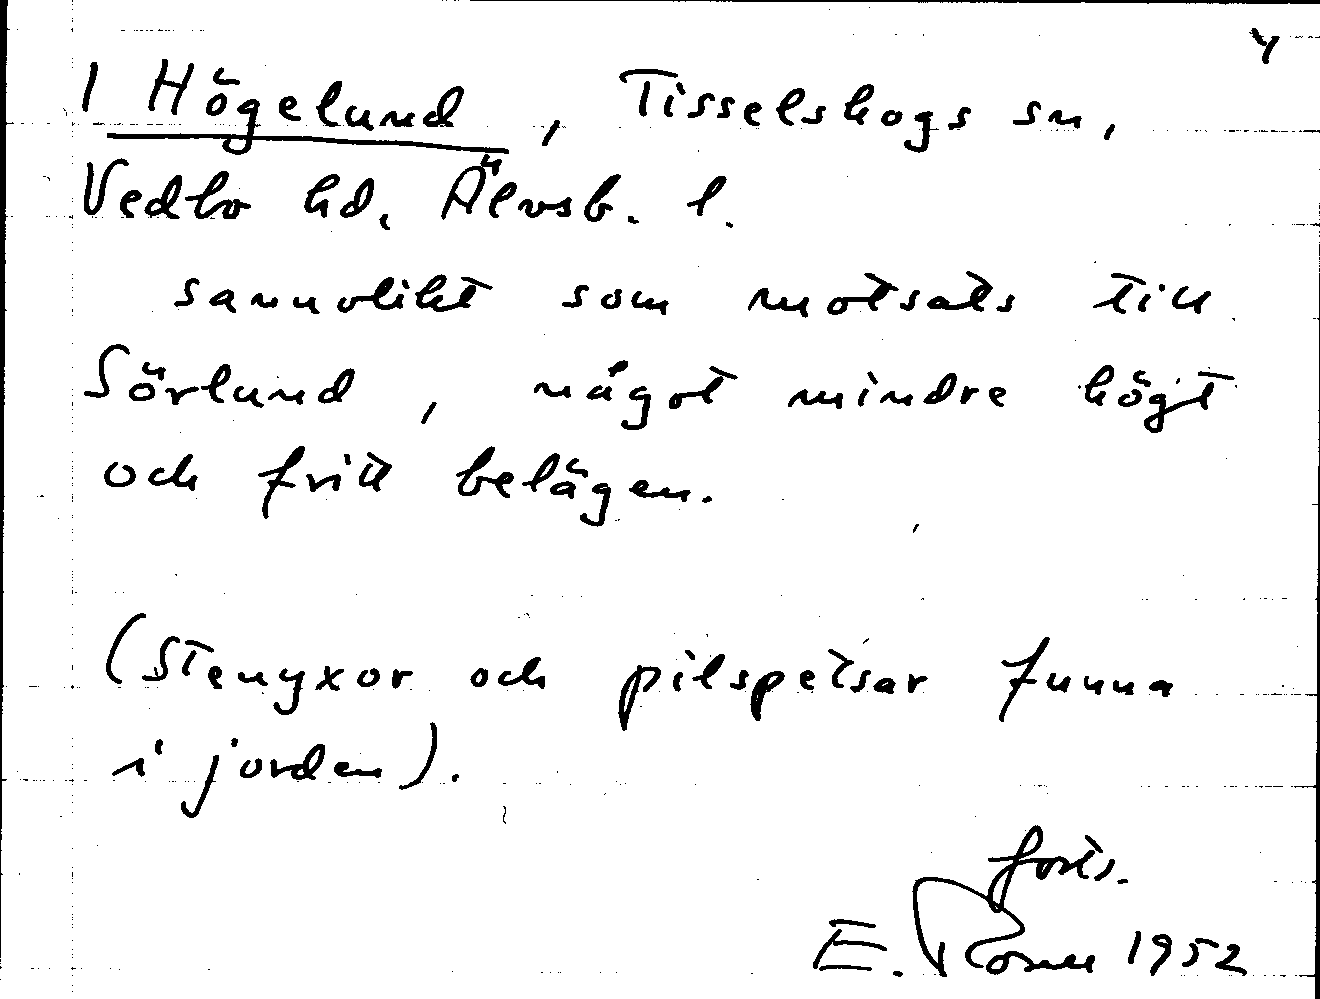 4
1 Högelund, Tisselskogs sn,
Vedbo hd. Älvsb. l.
sannolikt som motsats till
Sörlund, något mindre högt
och fritt belägen.
(Stenyxor och pilspetsar funna
i jorden).
forts.
E. 1952